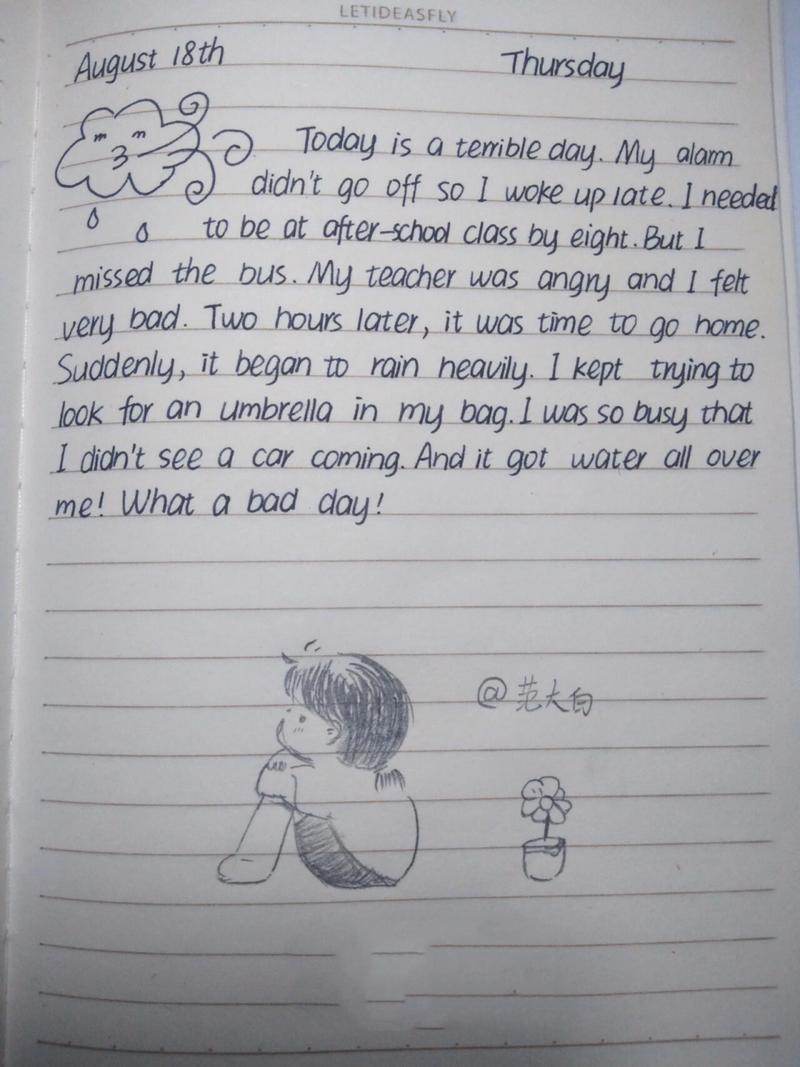 LETIDEASFLY
August 18th Thursday
Today is a terrible day. My alarm
didn't go off so I woke up late. I needed
to be at after-school class by eight. But I
missed the bus. My teacher was angry and I felt
very bad. Two hours later, it was time to go home.
Suddenly, it began to rain heavily. I kept trying to
look for an umbrella in my bag. I was so busy that
I didn't see a car coming. And it got water all over
me! What a bad day!
@范大白